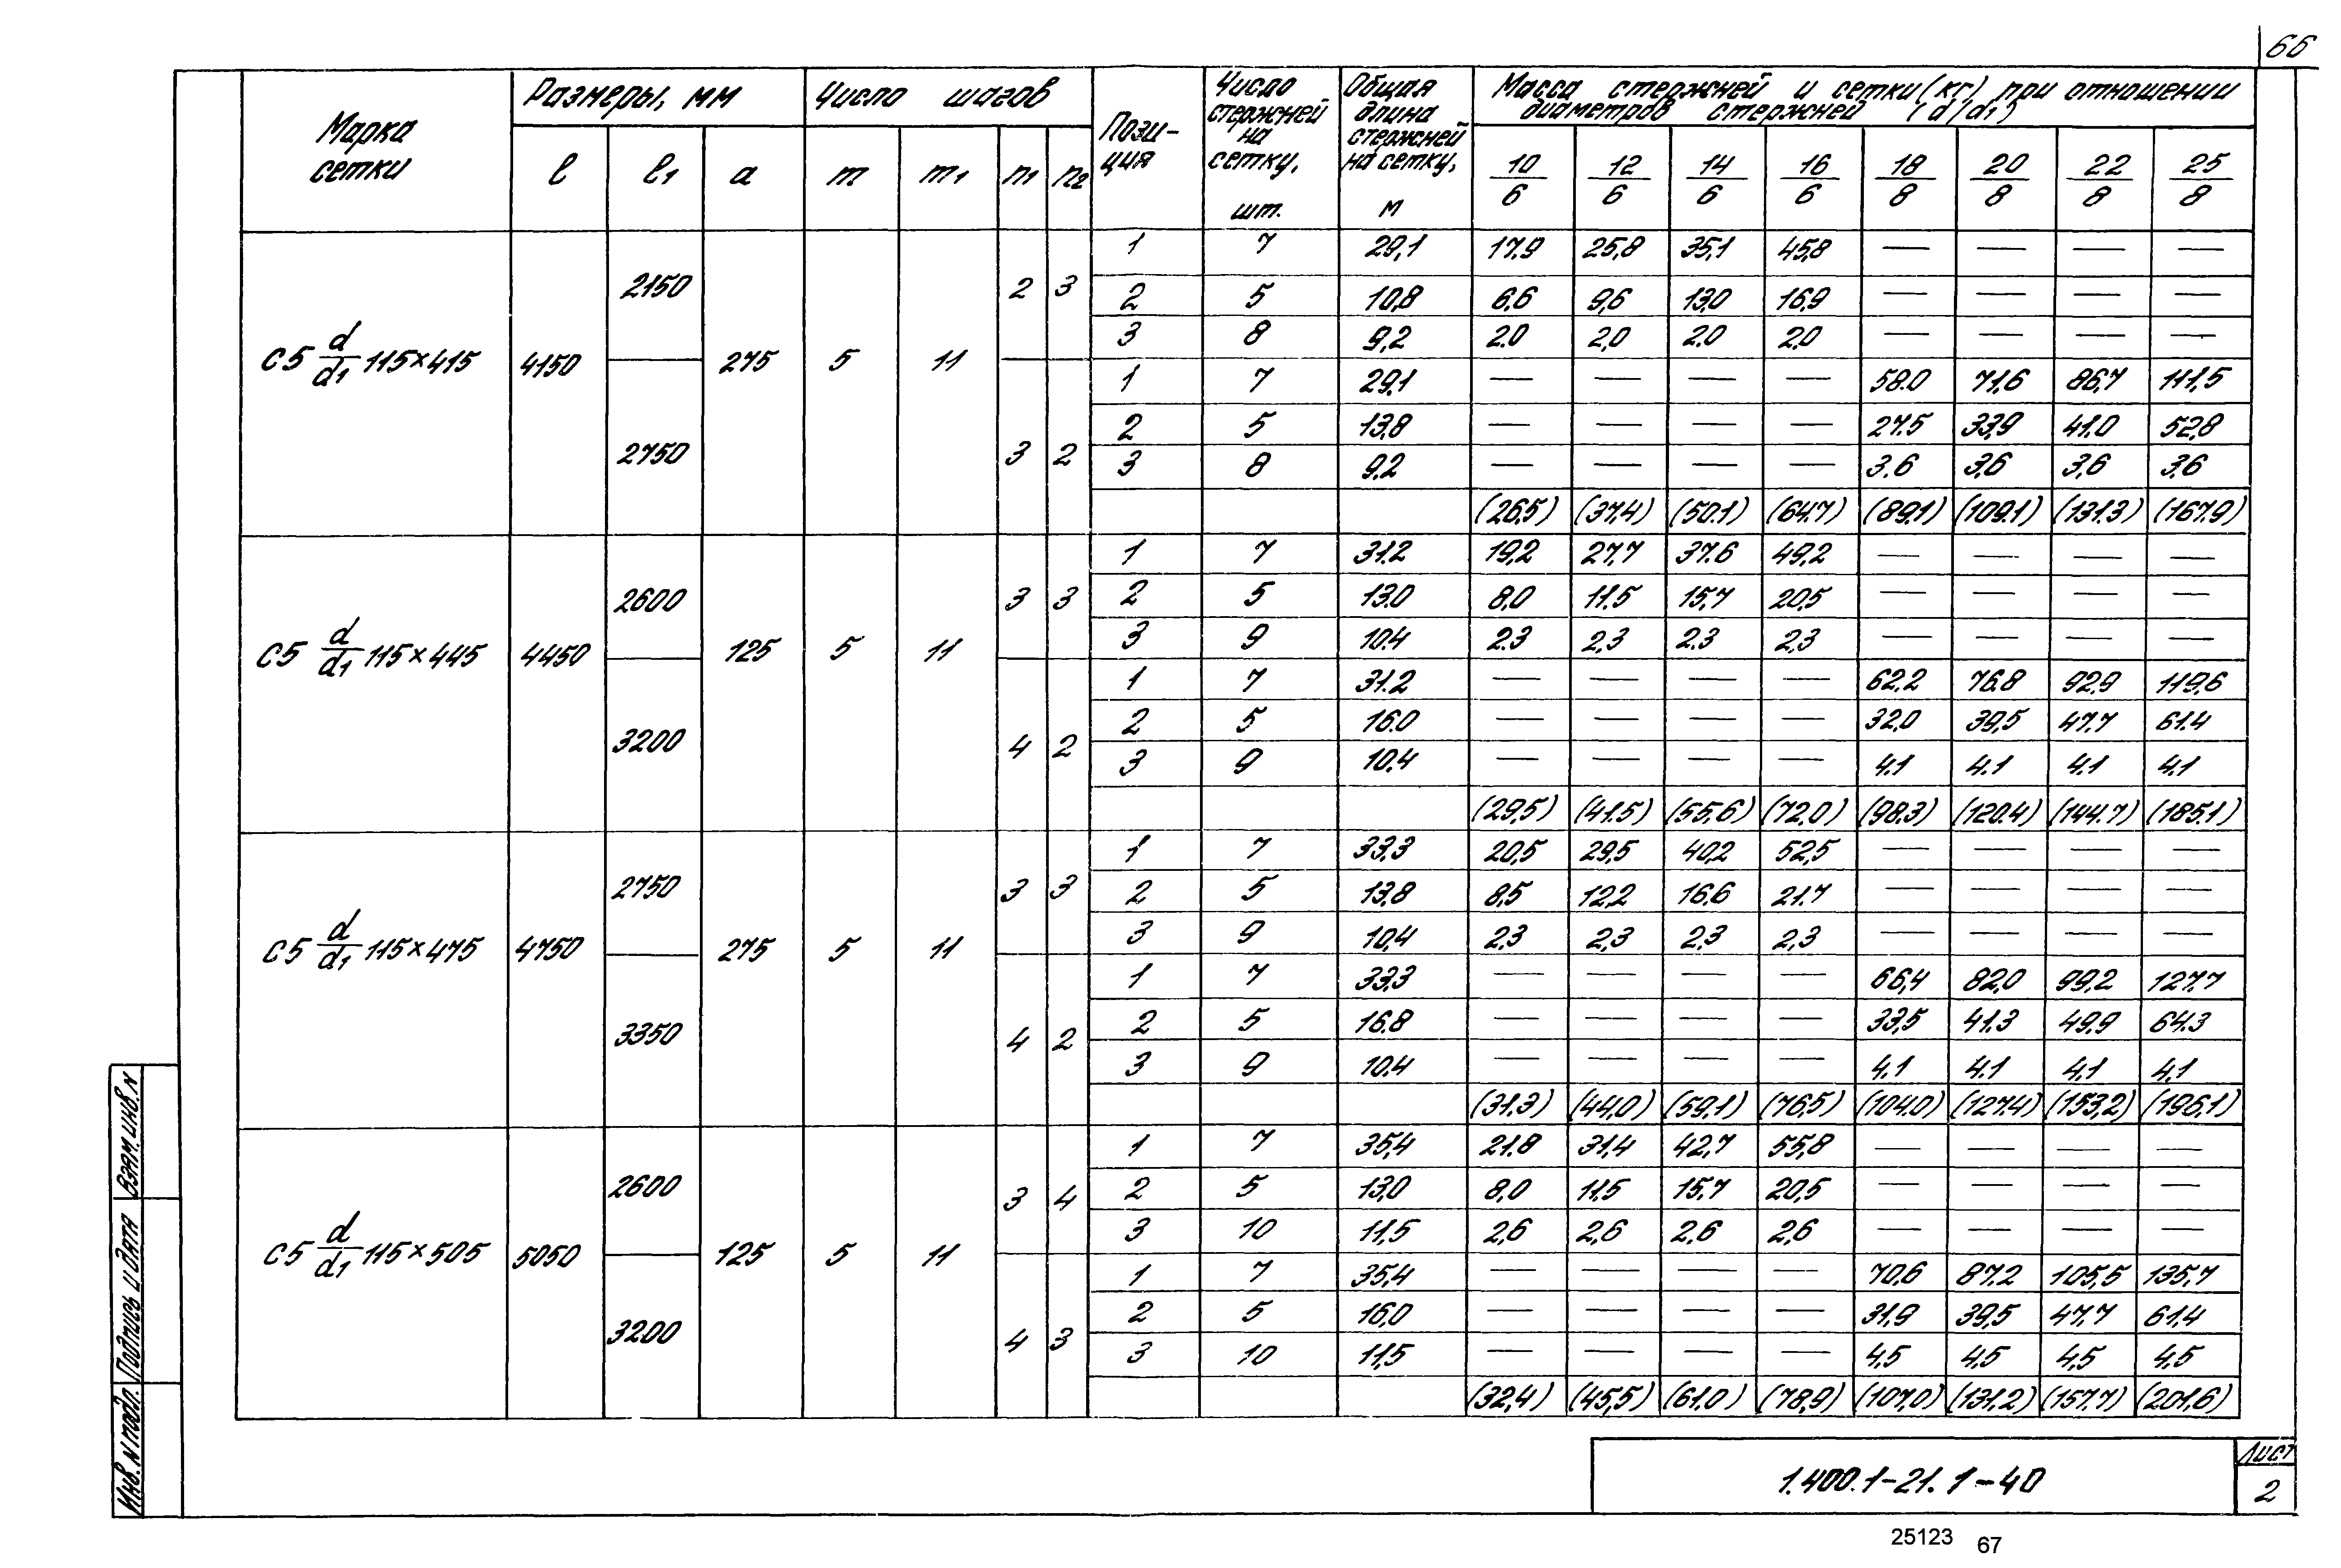 66
Марка сетки | Размеры, мм | Число шагов | Пози-ция | Число стержней на сетку, шт. | Общая длина стержней на сетку, м | Масса стержней и сетки (кг) при отношении диаметров стержней (d/d1)
l | l1 | a | m | m1 | n1 | n2 | 10/6 | 12/6 | 14/6 | 16/6 | 18/8 | 20/8 | 22/8 | 25/8
С5 d/d1 115×415 | 4150 | 2150 | 275 | 5 | 11 | 2 | 3
1 | 7 | 29,1 | 17,9 | 25,8 | 35,1 | 45,8 | — | — | — | —
2 | 5 | 10,8 | 6.6 | 9,6 | 13,0 | 16,9 | — | — | — | —
3 | 8 | 9,2 | 2.0 | 2,0 | 2.0 | 2,0 | — | — | — | —
2750 | 3 | 2
1 | 7 | 29,1 | — | — | — | — | 58.0 | 71,6 | 86,7 | 111,5
2 | 5 | 13,8 | — | — | — | — | 27.5 | 33,9 | 41.0 | 52,8
3 | 8 | 9,2 | — | — | — | — | 3.6 | 3,6 | 3,6 | 3,6
(26,5) | (37,4) | (50.1) | (64.7) | (89,1) | (109.1) | (131.3) | (167.9)
С5 d/d1 115×445 | 4450 | 2600 | 125 | 5 | 11 | 3 | 3
1 | 7 | 31.2 | 19,2 | 27,7 | 37.6 | 49,2 | — | — | — | —
2 | 5 | 13.0 | 8,0 | 11.5 | 15,7 | 20,5 | — | — | — | —
3 | 9 | 10.4 | 2.3 | 2,3 | 2.3 | 2,3 | — | — | — | —
3200 | 4 | 2
1 | 7 | 31.2 | — | — | — | — | 62,2 | 76.8 | 92,9 | 119,6
2 | 5 | 16.0 | — | — | — | — | 32,0 | 39,5 | 47.7 | 61.4
3 | 9 | 10,4 | — | — | — | — | 4.1 | 4.1 | 4.1 | 4,1
(29,5) | (41.5) | (55,6) | (72,0) | (98.3) | (120.4) | (144.7) | (185.1)
С5 d/d1 115×475 | 4750 | 2750 | 275 | 5 | 11 | 3 | 3
1 | 7 | 33,3 | 20,5 | 29,5 | 40,2 | 52,5 | — | — | — | —
2 | 5 | 13,8 | 8,5 | 12,2 | 16,6 | 21.7 | — | — | — | —
3 | 9 | 10,4 | 2,3 | 2,3 | 2,3 | 2,3 | — | — | — | —
3350 | 4 | 2
1 | 7 | 33,3 | — | — | — | — | 66,4 | 82,0 | 99,2 | 127.7
2 | 5 | 16.8 | — | — | — | — | 33,5 | 41.3 | 49,9 | 64.3
3 | 9 | 10.4 | — | — | — | — | 4.1 | 4.1 | 4,1 | 4,1
(31.3) | (44,0) | (59,1) | (76,5) | (104.0) | (127.4) | (153,2) | (196,1)
С5 d/d1 115×505 | 5050 | 2600 | 125 | 5 | 11 | 3 | 4
1 | 7 | 35,4 | 21.8 | 31,4 | 42,7 | 55,8 | — | — | — | —
2 | 5 | 13,0 | 8,0 | 11,5 | 15,7 | 20,5 | — | — | — | —
3 | 10 | 11,5 | 2,6 | 2,6 | 2,6 | 2,6 | — | — | — | —
3200 | 4 | 3
1 | 7 | 35,4 | — | — | — | — | 70,6 | 87.2 | 105,5 | 135,7
2 | 5 | 16,0 | — | — | — | — | 31,9 | 39,5 | 47.7 | 61,4
3 | 10 | 11,5 | — | — | — | — | 4,5 | 4,5 | 4,5 | 4,5
(32,4) | (45,5) | (61.0) | (78,9) | (107,0) | (131,2) | (157.7) | (201,6)
Взам. инв. N
Подпись и дата
Инв. N подл.
1.400.1-21. 1-40
Лист
2
25123 67